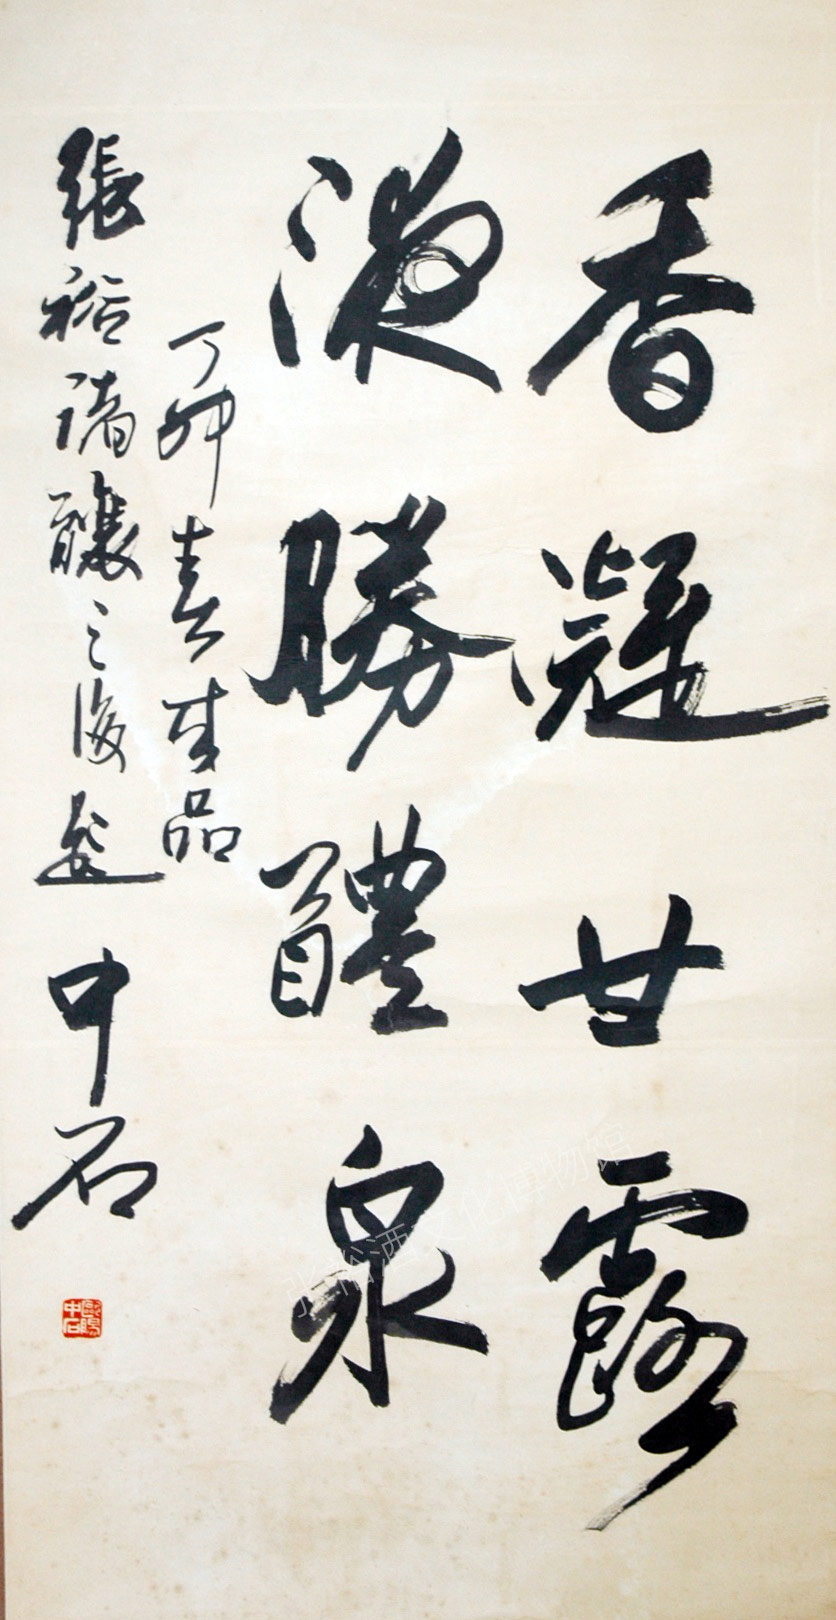 香凝甘露
液勝醴泉
丁卯春来品
張裕諸釀之後題 中石
歐陽中石
张裕酒文化博物馆